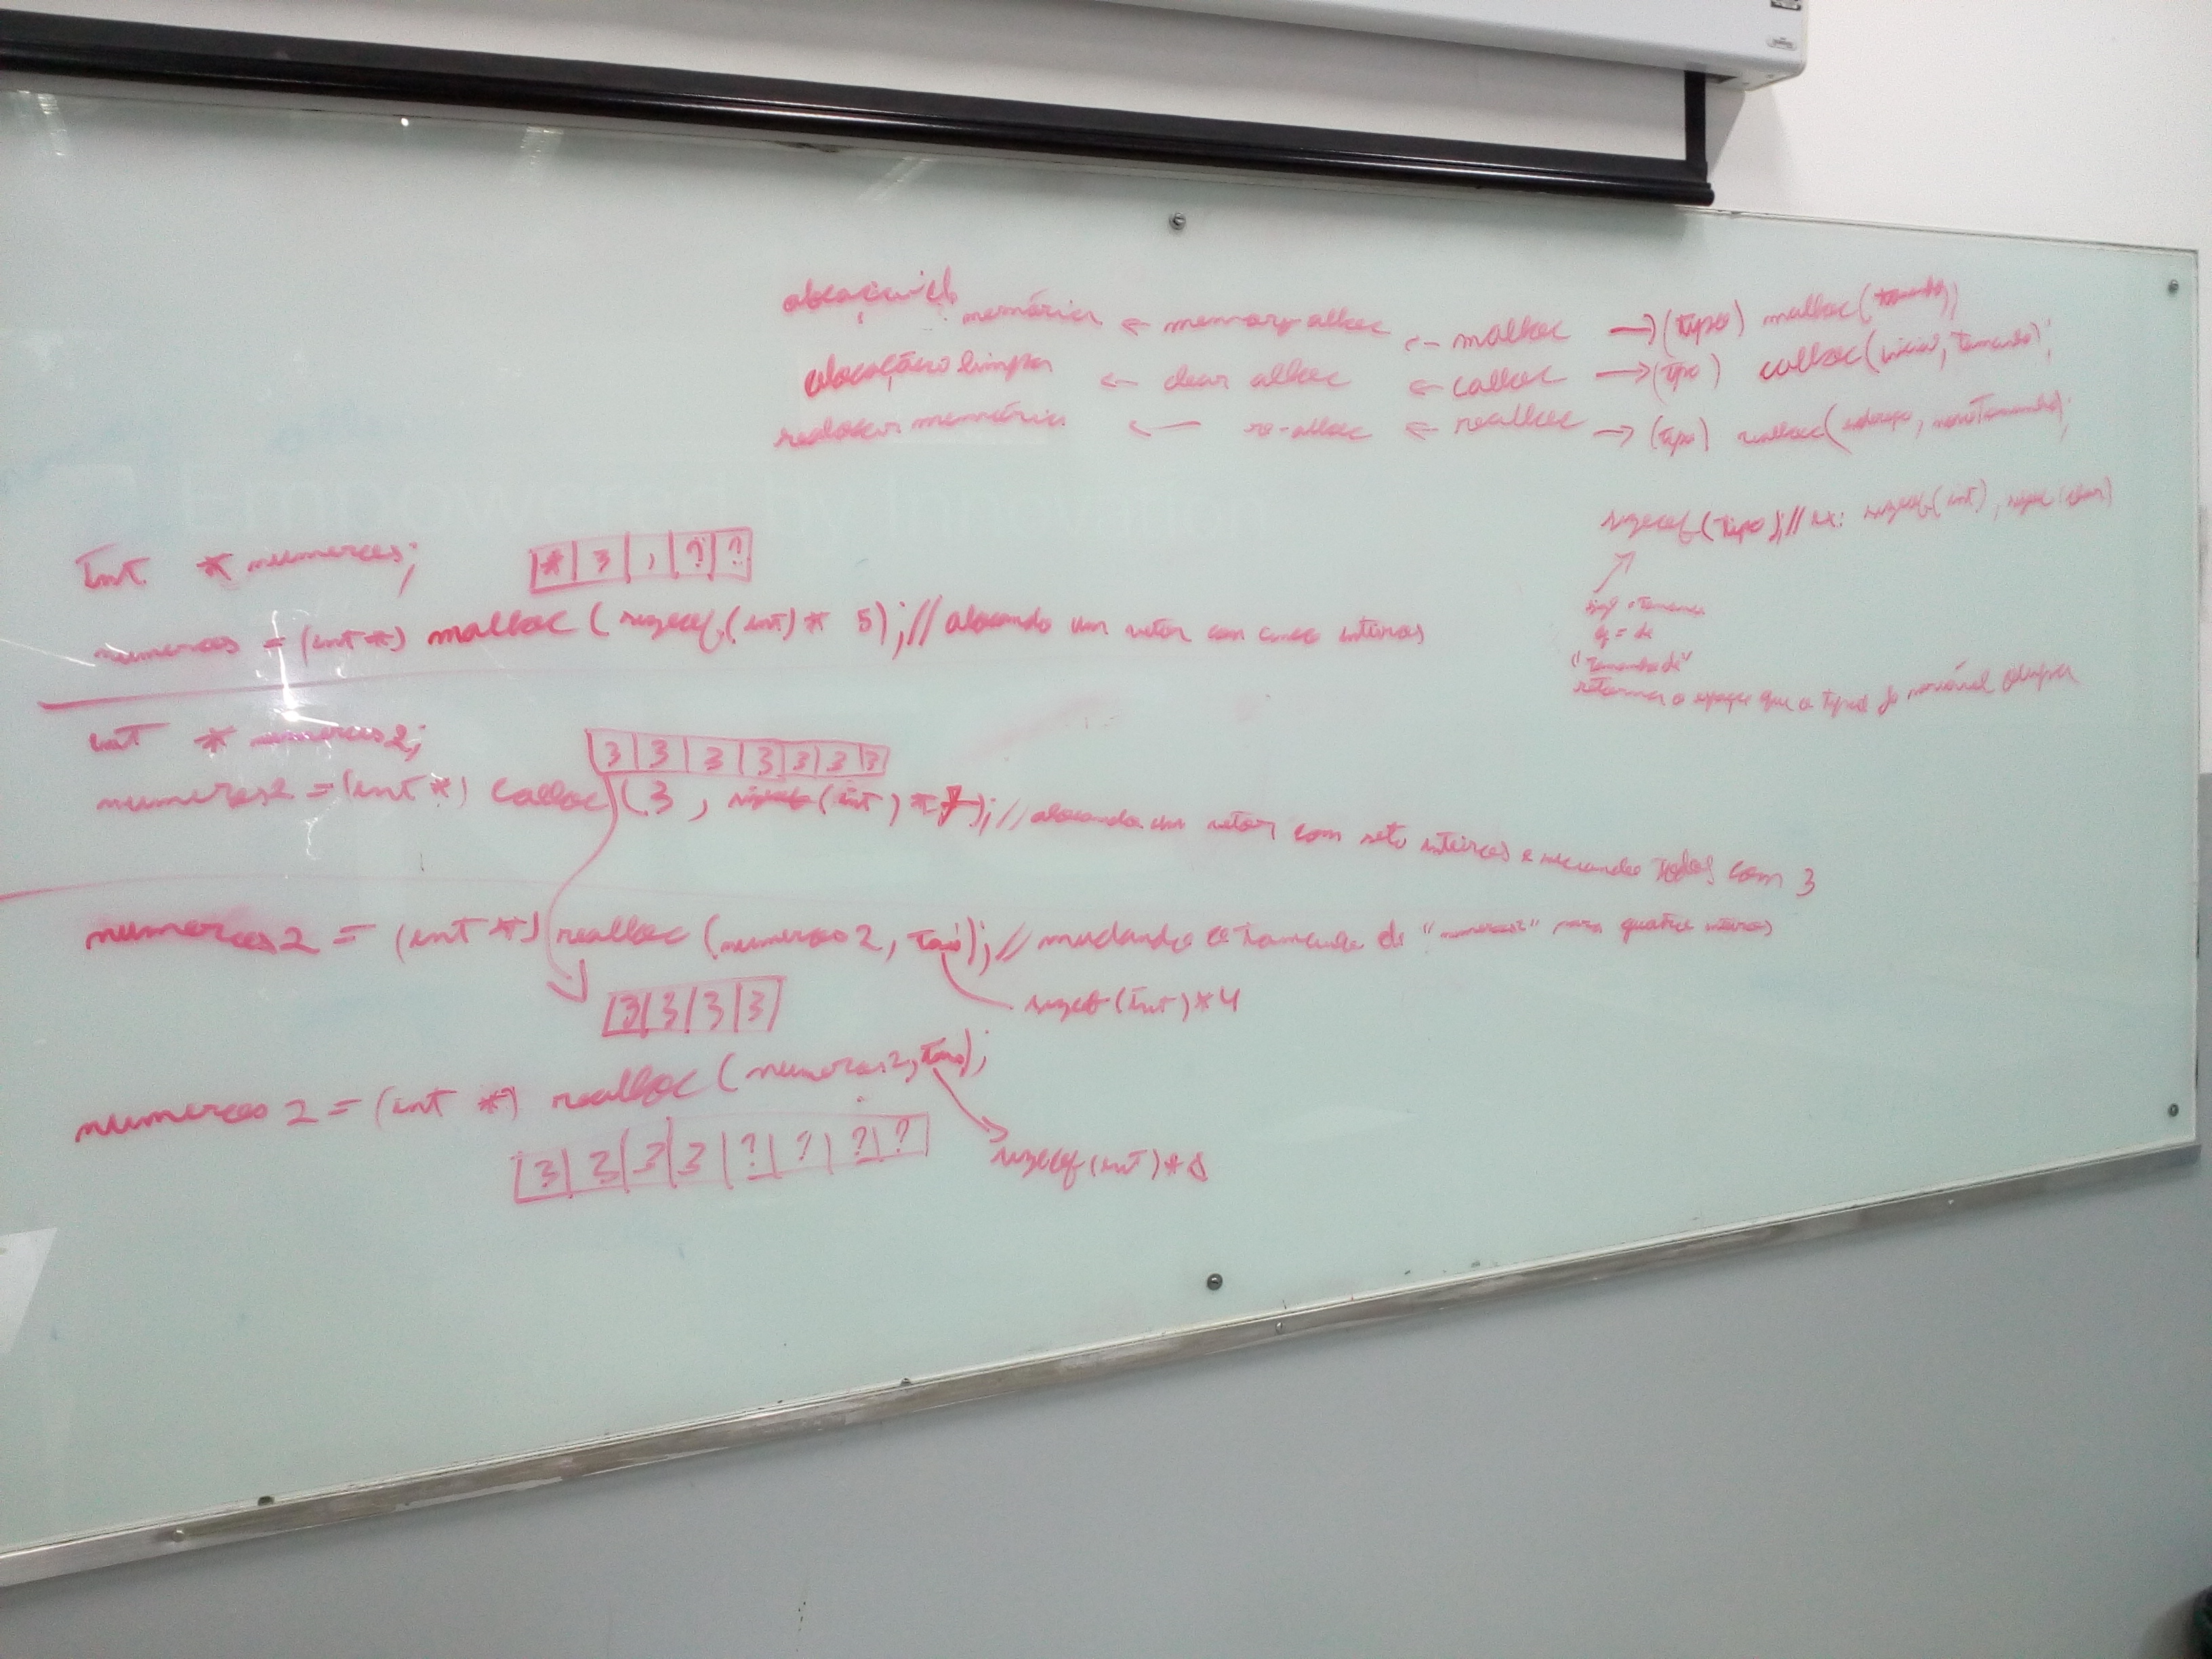 alocação de memória <- memory alloc <- malloc -> (tipo) malloc(tamanho);
alocação limpa <- clear alloc <- calloc -> (tipo) calloc(inicial, tamanho);
realocar memória <- re-alloc <- realloc -> (tipo) realloc(endereço, novoTamanho);
sizeof(tipo); // ex: sizeof(int), sizeof(char)
size = tamanho
of = de
"tamanho de"
retorna o espaço que o tipo de variável ocupa
int * numeros;
* | 3 | , | ? | ?
numeros = (int *) malloc (sizeof(int) * 5); // alocando um vetor com cinco inteiros
int * numeros2;
3 | 3 | 3 | 3 | 3 | 3 | 3
numeros2 = (int *) calloc (3, sizeof(int) * 7); // alocando um vetor com sete inteiros e iniciando todos com 3
numeros2 = (int *) realloc (numeros2, tam); // mudando o tamanho de "numeros2" para quatro inteiros
3 | 3 | 3 | 3
sizeof(int) * 4
numeros2 = (int *) realloc (numeros2, tam);
3 | 3 | 3 | 3 | ? | ? | ? | ?
sizeof(int) * 8